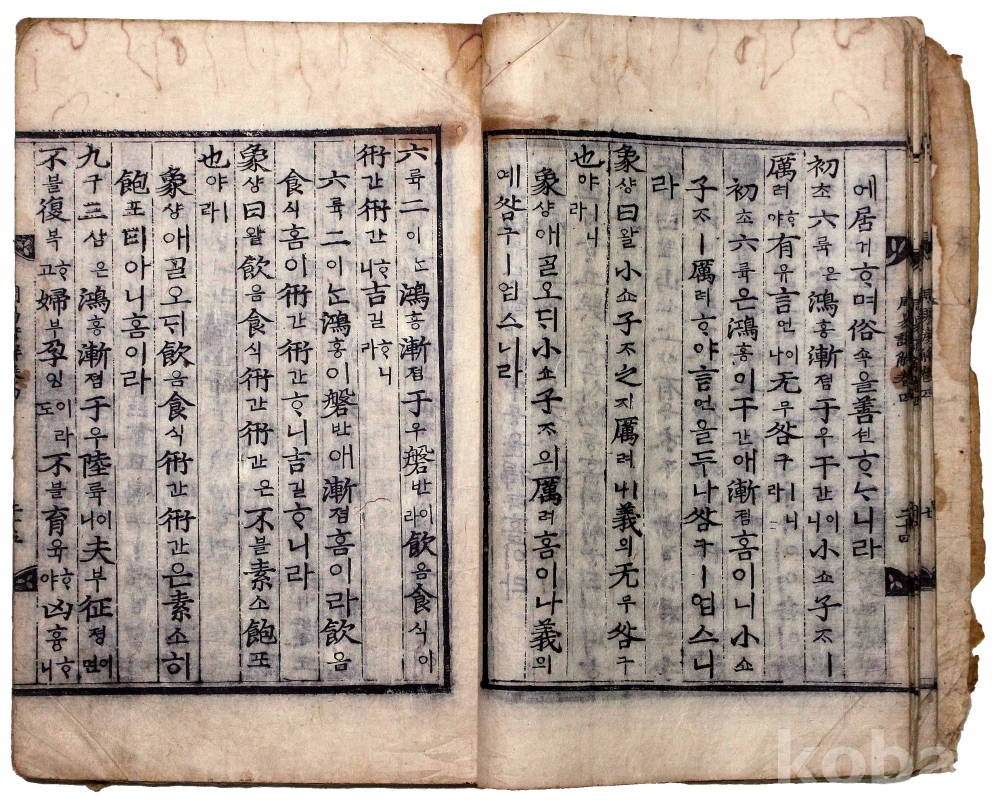 에居거ᄒᆞ며俗쇽을善션ᄒᆞᄂᆞ니라
初초六륙은鴻홍漸졈于우干간이니小쇼子ᄌᆞㅣ
厲려ᄒᆞ야有유言언이나无무咎구ㅣ니라
初초六륙은鴻홍이干간애漸졈홈이니小쇼
子ᄌᆞㅣ厲려ᄒᆞ야言언을두나咎구ㅣ업스니
라
象샹曰왈小쇼子ᄌᆞ之지厲려나ㅣ義의无무咎구
也야ㅣ니라
象샹애ᄀᆞᆯ오ᄃᆡ小쇼子ᄌᆞ의厲려홈이나義의
예咎구ㅣ업스니라
六륙二이ᄂᆞᆫ鴻홍漸졈于우磐반이라飮음食식이
衎간衎간ᄒᆞ니吉길ᄒᆞ니라
六륙二이ᄂᆞᆫ鴻홍이磐반애漸졈홈이라飮음
食식홈이衎간衎간ᄒᆞ니吉길ᄒᆞ니라
象샹曰왈飮음食식衎간衎간은不블素소飽포
也야ㅣ라
象샹애ᄀᆞᆯ오ᄃᆡ飮음食식衎간衎간은素소히
飽포티아니홈이라
九구三삼은鴻홍漸졈于우陸륙이니夫부征졍이면
不블復복ᄒᆞ고婦부孕잉이라도不블育육ᄒᆞ야凶흉ᄒᆞ니
koba